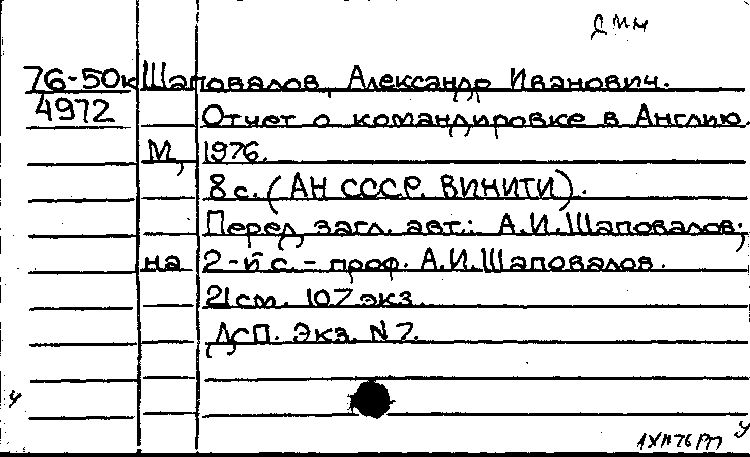 ДМН
76-50к Шаповалов, Александр Иванович.
4972 Отчет о командировке в Англию.
М, 1976.
8 с. (АН СССР. ВИНИТИ).
Перед загл. авт.: А.И.Шаповалов;
на 2-й с. - проф. А.И.Шаповалов.
21 см. 107 экз.
ДСП. Экз. N 7.